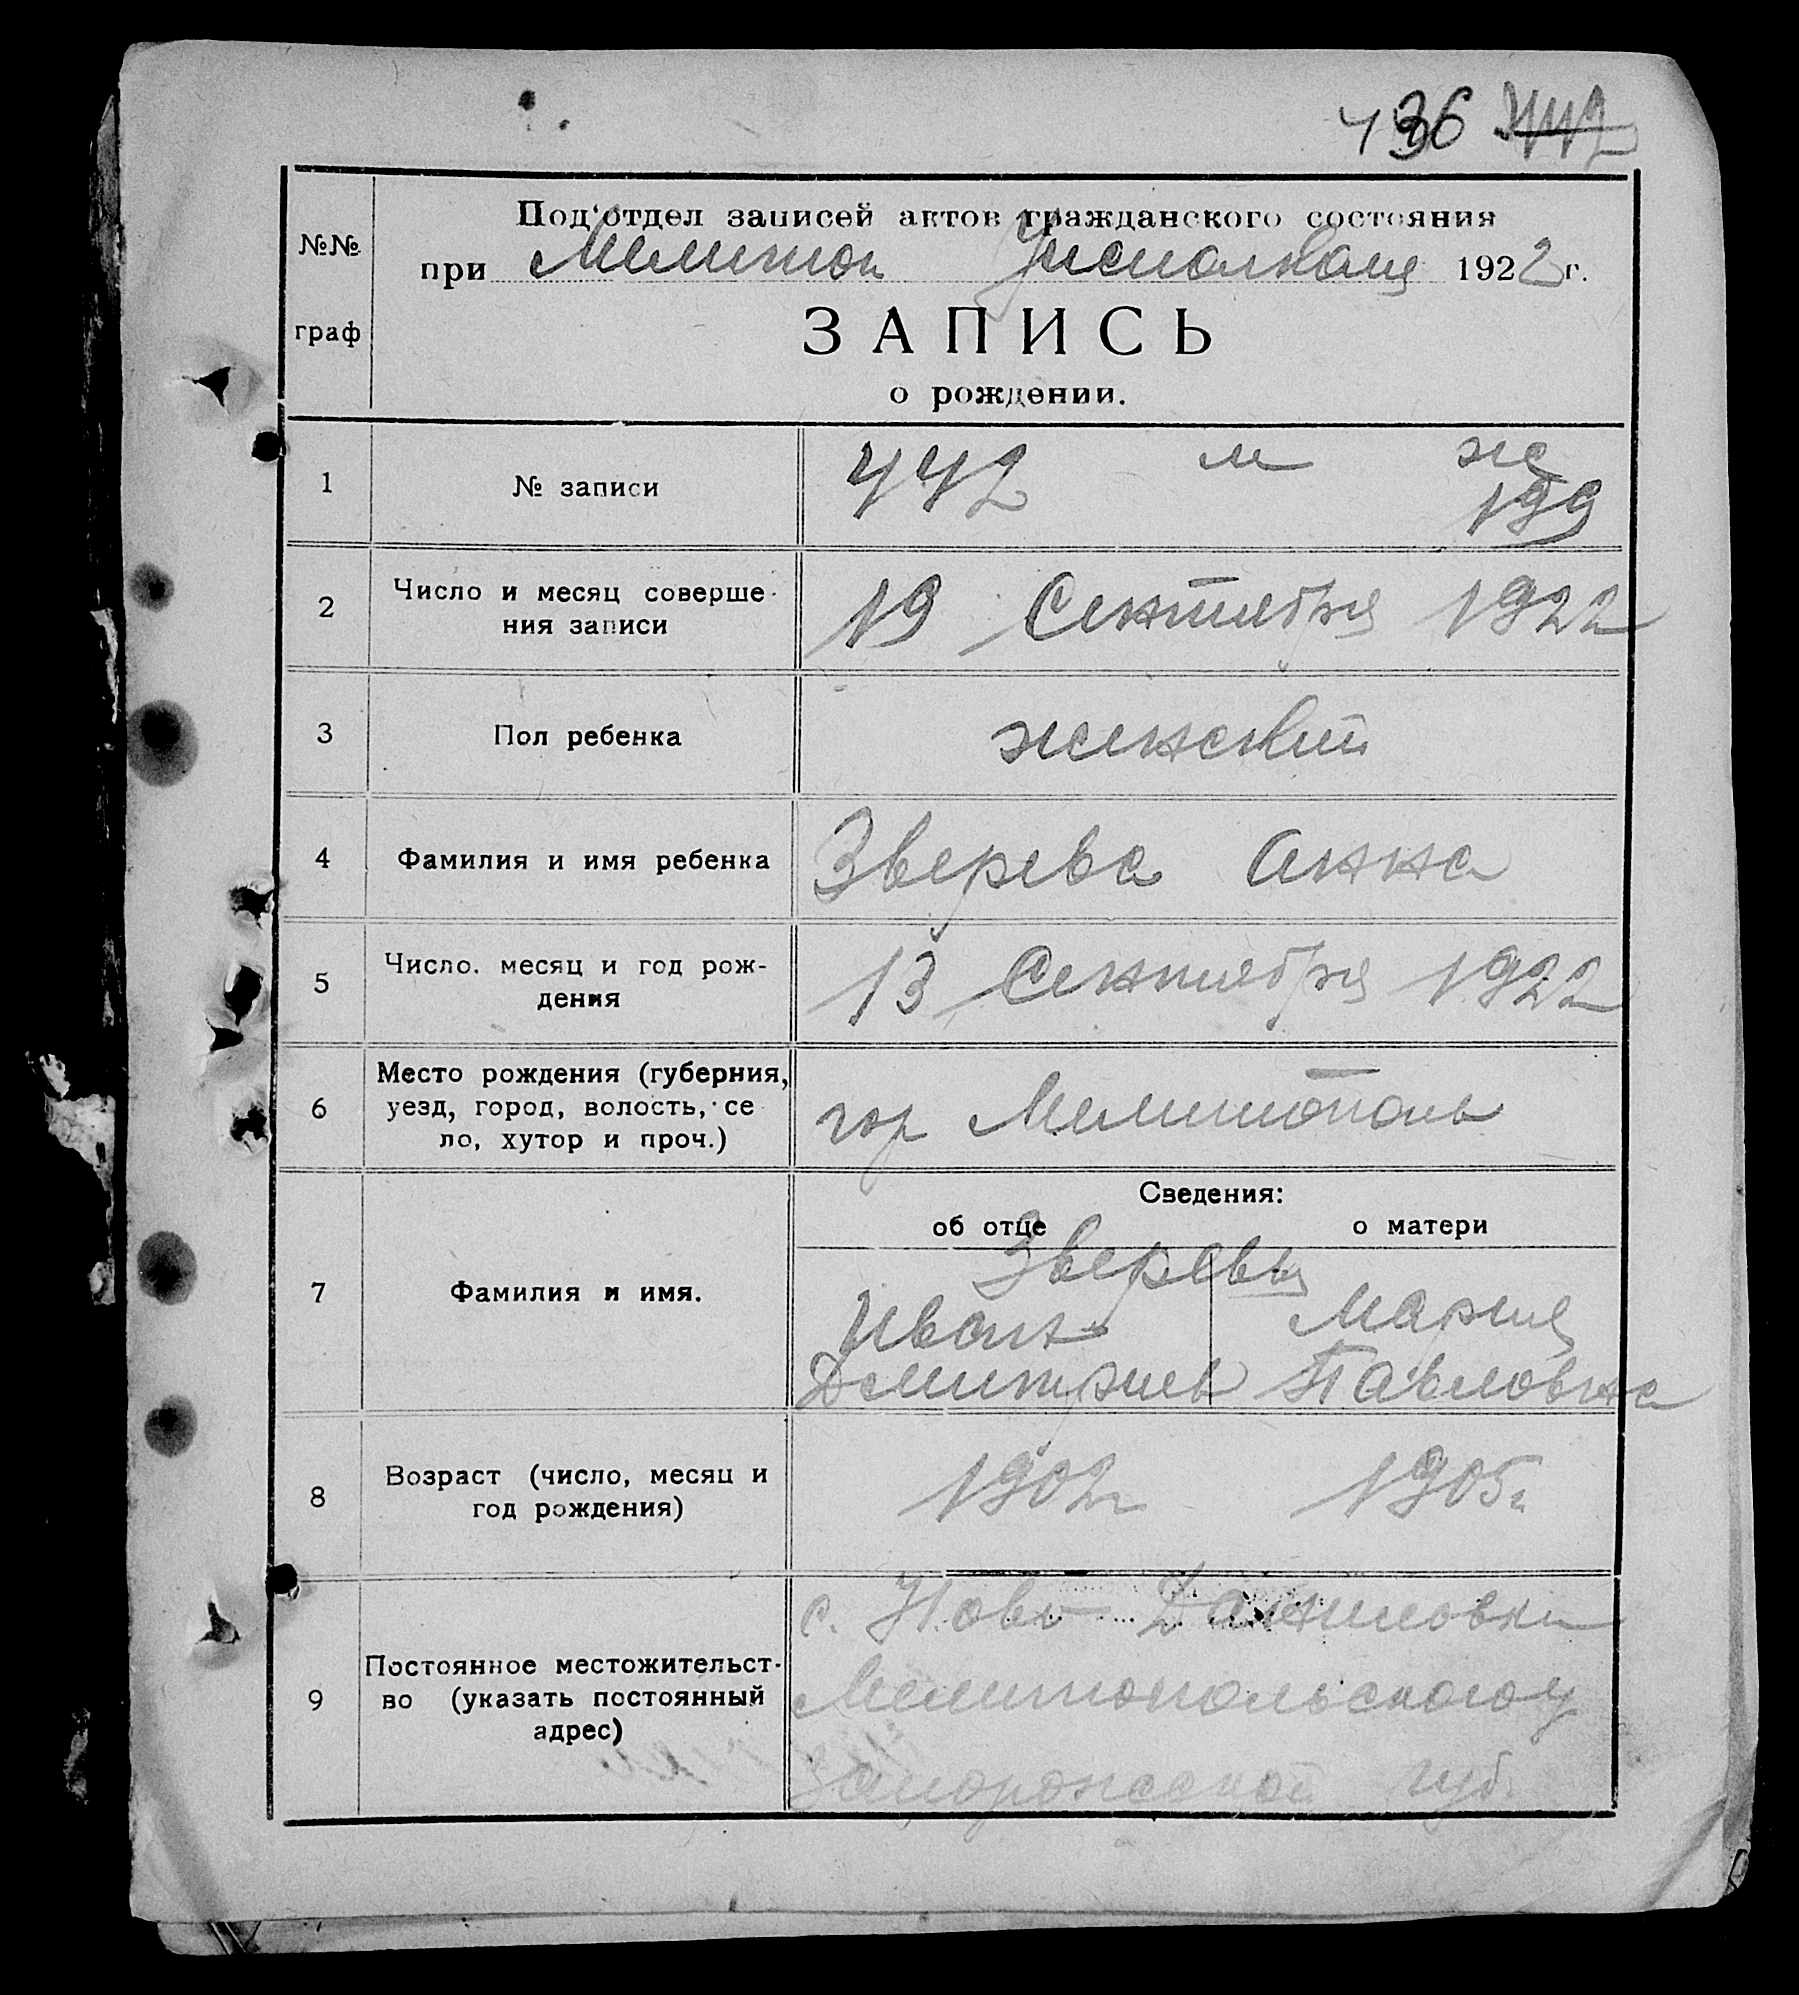 436 442
№№ граф
Под'отдел записей актов гражданского состояния
при Мелитоп Уисполкоме 1922 г.
ЗАПИСЬ
о рождении.
1 № записи 442 м ж
199
2 Число и месяц соверше-
ния записи
19 Сентября 1922
3 Пол ребенка женский
4 Фамилия и имя ребенка Зверева Анна
5 Число. месяц и год рож-
дения
13 Сентября 1922
6 Место рождения (губерния,
уезд, город, волость, се
ло, хутор и проч.)
гор Мелитополь
Сведения:
об отце о матери
7 Фамилия и имя.
Зверевы
Иван Мария
Дмитриев Павловна
8 Возраст (число, месяц и
год рождения)
1902г 1905г
9 Постоянное местожительст-
во (указать постоянный
адрес)
с. Ново-Даниловки
Мелитопольского у
Запорожской губ.